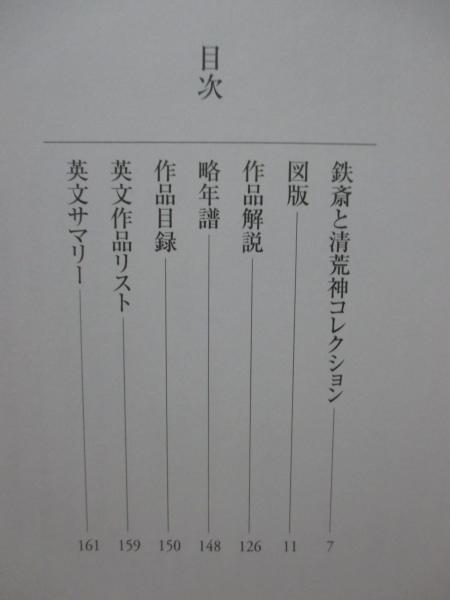 目次
鉄斎と清荒神コレクション 7
図版 11
作品解説 126
略年譜 148
作品目録 150
英文作品リスト 159
英文サマリー 161